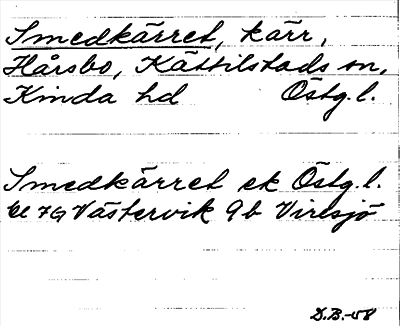 Smedkärret, kärr,
Hårsbo, Kättilstads sn,
Kinda hd Östg.l.
Smedkärret ek Östg.l.
bl 7G Västervik 9b Viresjö
D.B.-58